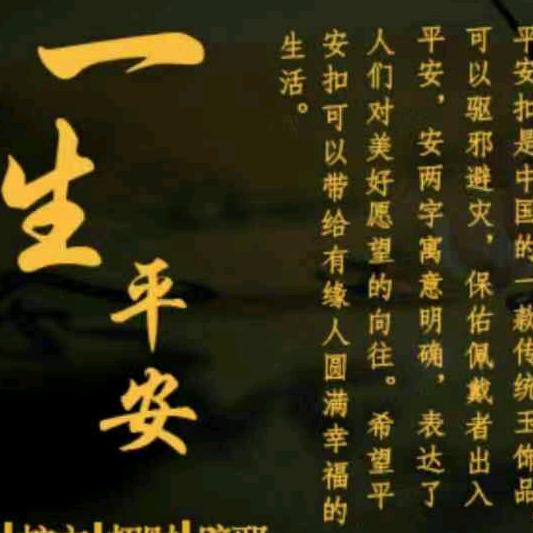 平安扣是中国的一款传统玉饰品
可以驱邪避灾，保佑佩戴者出入
平安，安两字寓意明确，表达了
人们对美好愿望的向往。希望平
安扣可以带给有缘人圆满幸福的
生活。
一生
平安